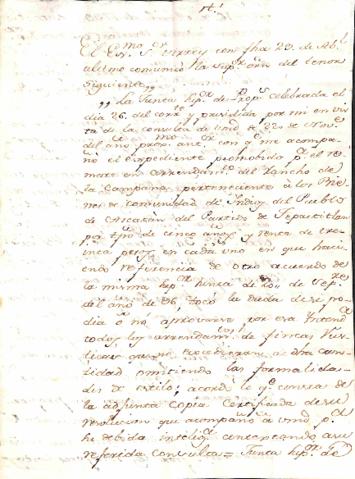 El Exmo. Sr. Virrey con fha 23 de Abl.
ultimo comunicó la Supor. orn. del tenor
Siguiente,,
,, La Junta Supr. de Props. celebrada el
dia 26 del corrte. presidida por mi en vis
ta de la consulta de Vmd. de 22 de Nove.
del año proxo. ante. con q. me acompa
ño el expediente promobido pa. el re
mate en arrendamto. del Rancho de
la Campana perteneciente a los Bie
nes de comunidad de Indios del Pueblo
de Alcatan del Partido de
por tpo. de cinco años y renta de tre
inca pesos en cada uno en que haci
endo referencia de otro acuerdo de
la misma Supr. Junta de 20 de Sepe.
del año de 96 tocó la duda de si po
dia ó no aprovarse por esa Intena.
todos los arrendamtos. de fincas
que no excediesen de dha can
tidad omitiendo las formalida
des de estilo; acordó lo q. consta de
la adjunta Copia Certificada de su
resolucion que acompaño a Vmd. pa.
su debida inteliga. contextando a su
referida consulta = Junta Supr. de